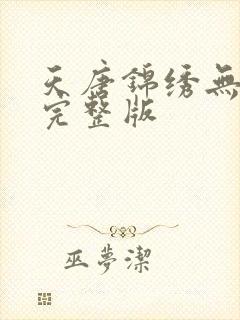 天唐锦绣無
完整版
巫夢潔